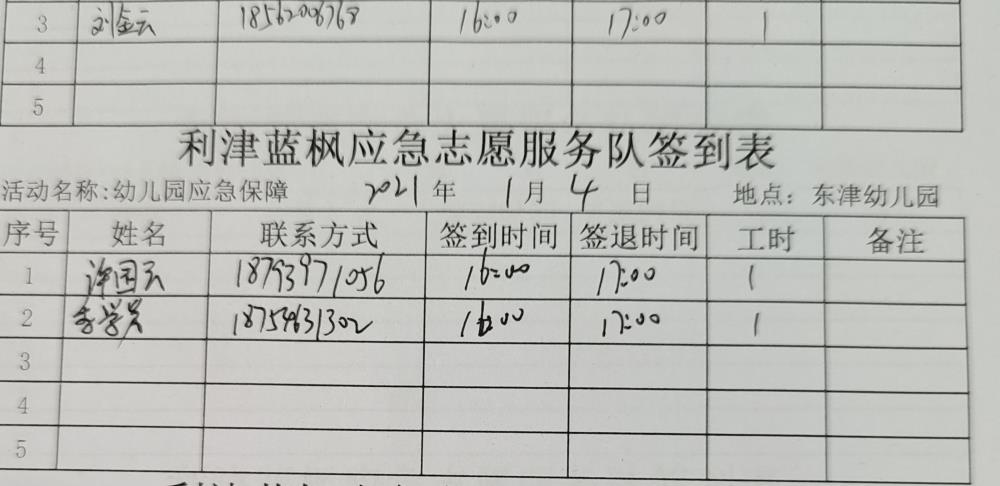 3 刘金云 18562006768 16:00 17:00 1
4
5
利津蓝枫应急志愿服务队签到表
活动名称:幼儿园应急保障 2021年 1月4日 地点：东津幼儿园
序号 姓名 联系方式 签到时间 签退时间 工时 备注
1 许国云 18793971056 16:00 17:00 1
2 李学兵 18754631302 16:00 17:00 1
3
4
5